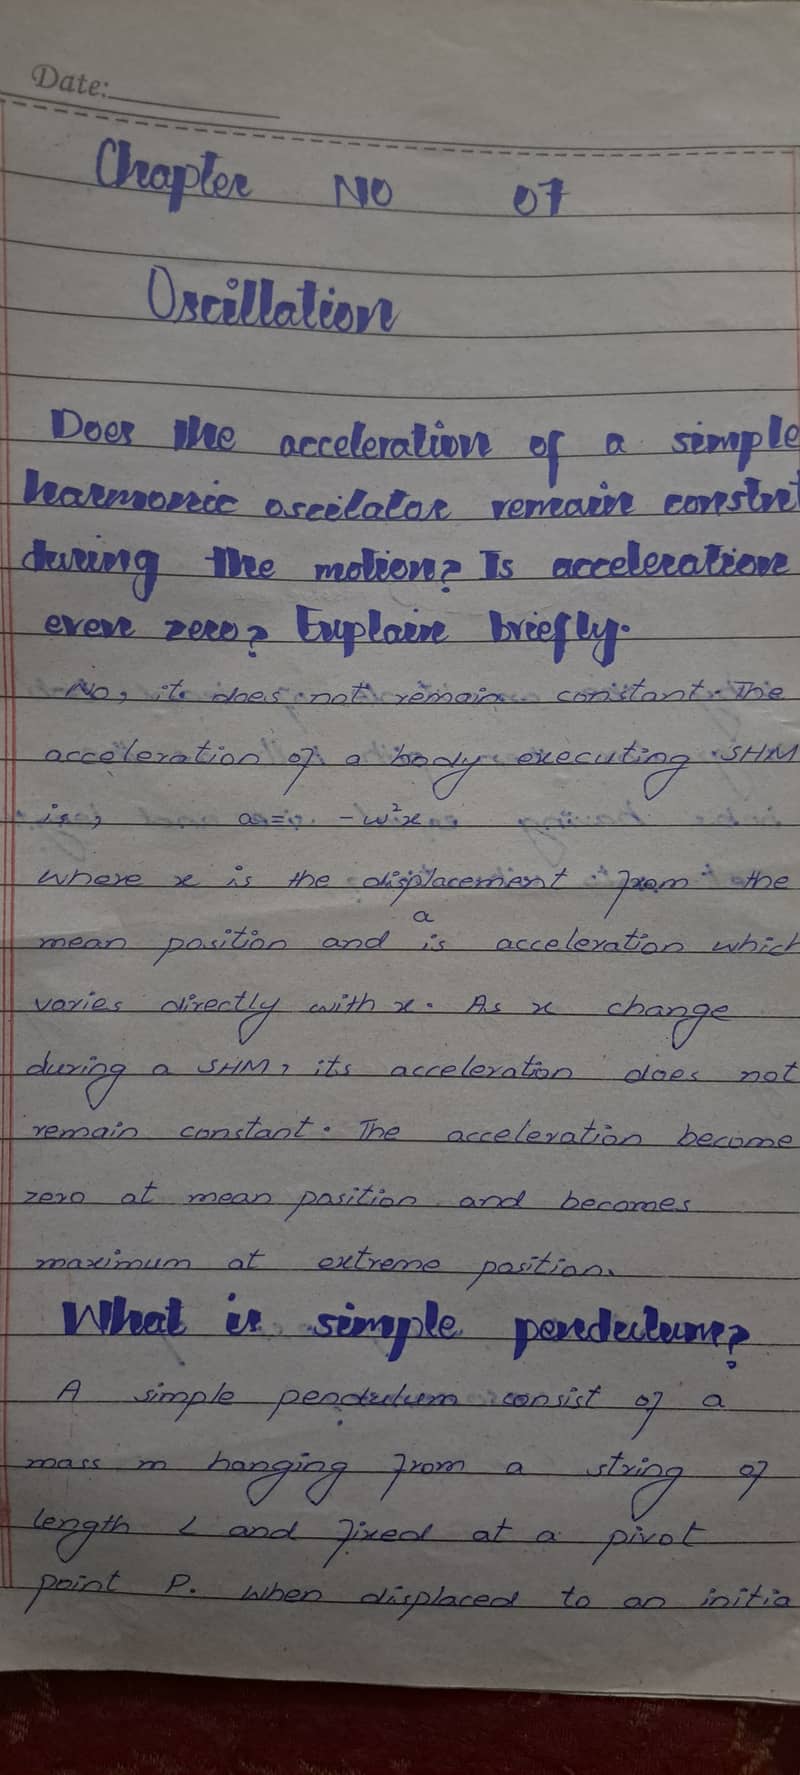 Date:
Chapter NO 07
Oscillation
Does the acceleration of a simple
harmonic oscilator remain constnt
during the motion? Is acceleration
ever zero? Explain briefly.
No, it does not remain constant. The
acceleration of a body executing SHM
is, a = -ω²x
where x is the displacement from the
a
mean position and is acceleration which
varies directly with x. As x change
during a SHM, its acceleration does not
remain constant. The acceleration become
zero at mean position and becomes
maximum at extreme position.
What is simple pendulum?
A simple pendulum consist of a
mass m hanging from a string of
length L and fixed at a pivot
point P. when displaced to an initia